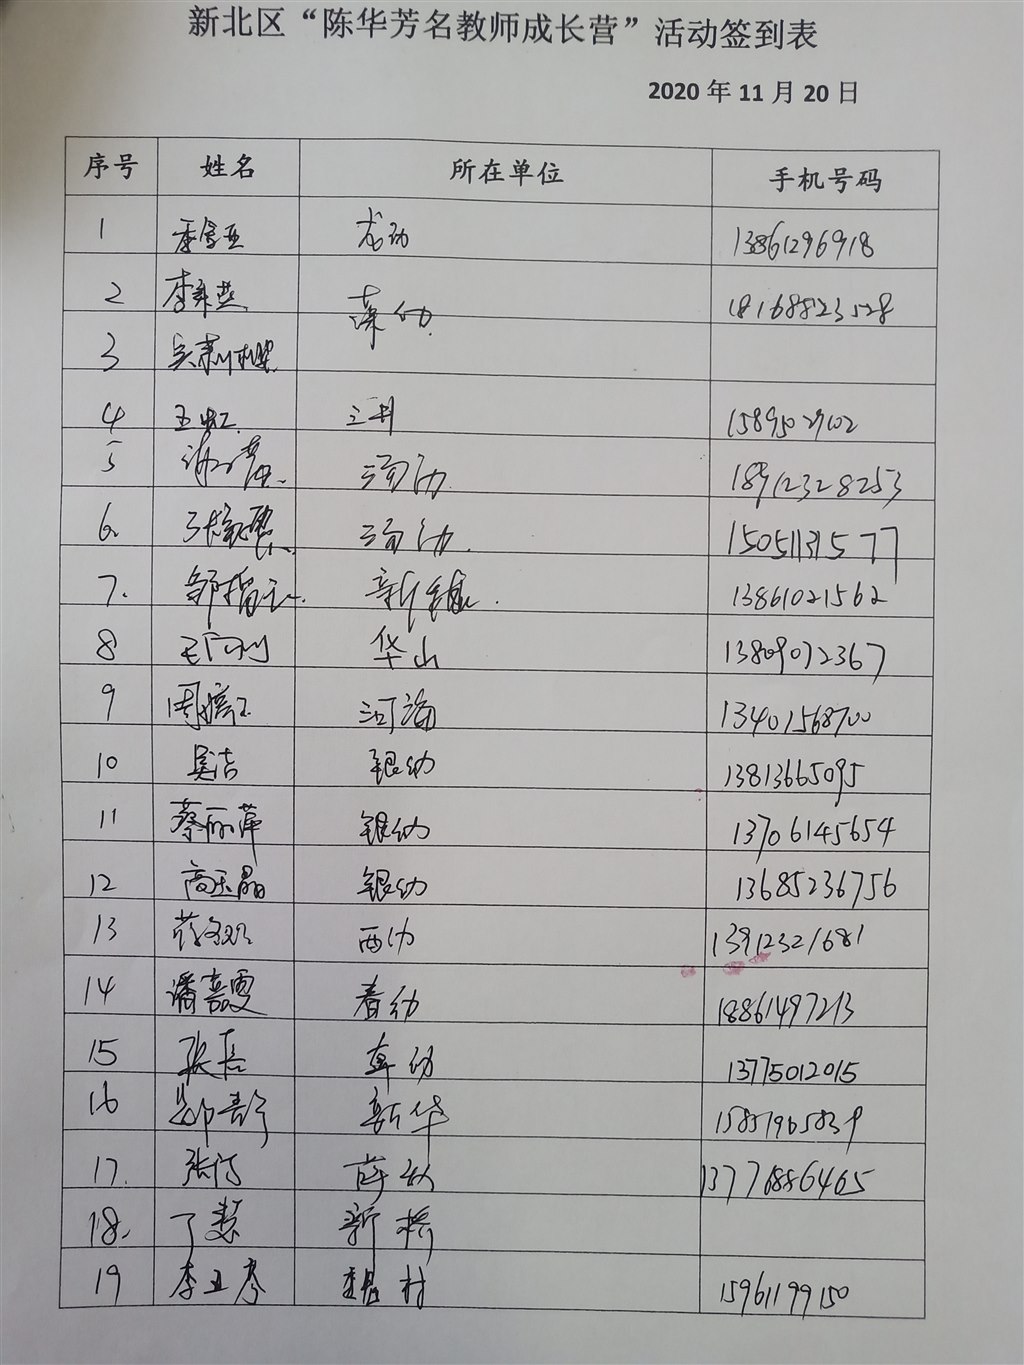 新北区“陈华芳名教师成长营”活动签到表
2020 年 11 月 20 日
序号 姓名 所在单位 手机号码
1 龙幼 13861296918
2 薛幼 18168823528
3
4 王虹 三井 15895029102
5 河幼 18912328253
6. 河幼. 15051131577
7. 邹 新 . 13861021562
8 华山 13809072367
9 周 河海 13401568700
10 吴洁 银幼 13813665095
11 蔡丽萍 银幼 13706145654
12 高玉晶 银幼 13685236756
13 西幼 13912321681
14 潘嘉雯 春幼 18861497213
15 张 奔幼 13775012015
16 新华 15851965839
17. 张 薛幼 13776886465
18. 丁慧 新桥
19 李亚 魏村 15961199150